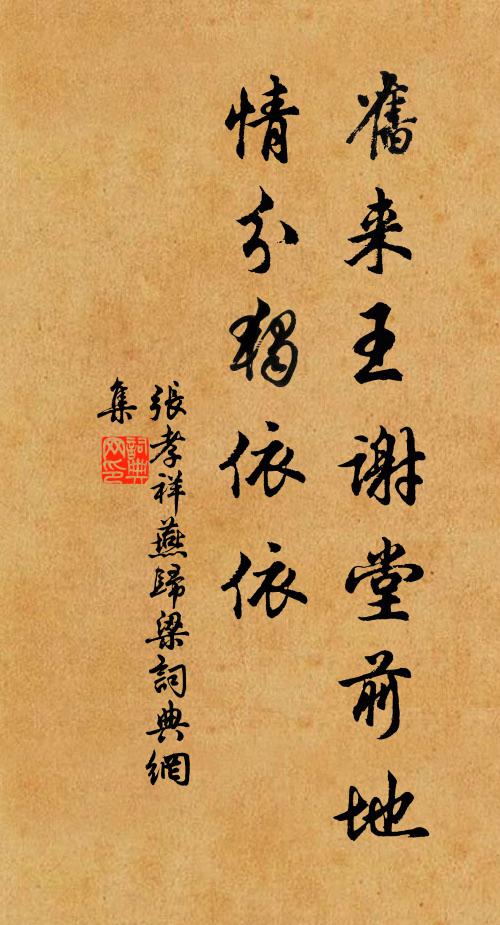 舊来王谢堂前地
情分獨依依
張孝祥燕歸梁詞典網
集
詞典网印